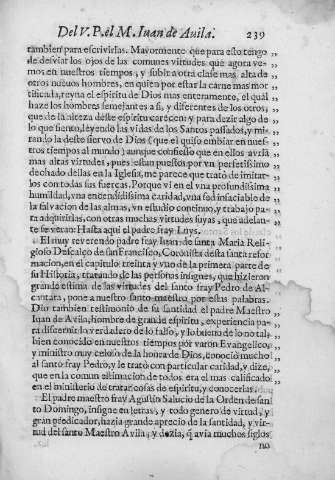 Del V. P. èl M. Iuan de Auila. 239
tambien para escrivirlas. Mayormente que para esto tengo ,,
de desviar los ojos de las comunes virtudes que agora ve- ,,
mos en nuestros tiempos, y subir a otra clase mas alta de ,,
otros nuevos hombres, en quien por estar la carne mas mor ,,
tificada, reyna el espiritu de Dios mas enteramente, el quál ,,
haze los hombres semejantes a si, y diferentes de los otros, ,,
que de la alteza deste espiritu carecen: y para dezir algo de ,,
lo que siento, leyendo las vidas de los Santos passados, y mi- ,,
rando la deste siervo de Dios (que el quiso embiar en nues- ,,
tros tiempos al mundo) aunque confiesso que en ellos avria ,,
mas altas virtudes, pues estan puestos por vn perfetissimo ,,
dechado dellas en la Iglesia, me parece que trató de imitar- ,,
los con todas sus fuerças. Porque vi en el vna profundissima ,,
humildad, vna encendidissima caridad, vna sed insaciable de ,,
la salvacion de las almas, vn estudio continuo, y trabajo pa- ,,
ra adquirirlas, con otras muchas virtudes suyas, que adelan- ,,
te se veràn: Hasta aqui el padre fray Luys.
El muy reverendo padre fray Iuan de santa Maria Reli-
gioso Descalço de san Francisco, Coronista desta santa refor
macion, en el capitulo treinta y vno de la primera parte de
su Historia, tratando de las personas insignes, que hizieron
grande estima de las virtudes del santo fray Pedro de Al-
cantara, pone a nuestro santo maestro por estas palabras.
Dio tambien testimonio de su santidad el padre Maestro ,,
Iuan de Avila, hombre de grande espiritu, experiencia pa- ,,
ra discernir lo verdadero de lo falso, y lo bueno de lo no tal, ,,
bien conocido en nuestros tiempos por varon Evangelico, ,,
y ministro muy celoso de la honra de Dios, conoció mucho ,,
al santo fray Pedro, y le trató con particular caridad, y dize, ,,
que en la comun estimacion de todos era el mas calificado ,,
en el ministerio de tratar cosas de espiritu, y conocerlas. ,,
El padre maestro fray Agustin Salucio de la Orden de san
to Domingo, insigne en letras, y todo genero de virtud, y
gran predicador, hazia grande aprecio de la santidad, y vir-
tud del santo Maestro Avila; y dezia, q̃ avia muchos siglos
no